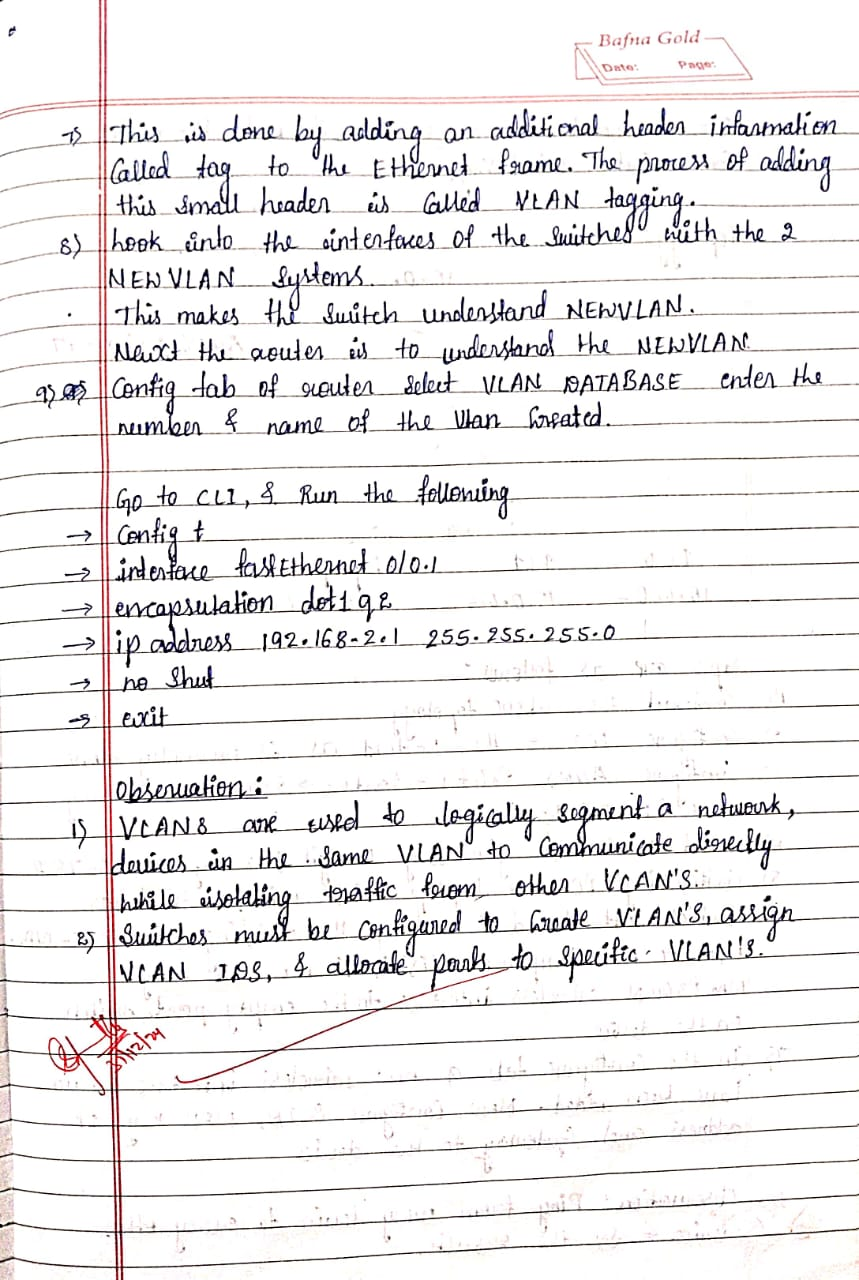 Bafna Gold
Date: Page:
7) This is done by adding an additional header information
Called tag to the Ethernet frame. The process of adding
this small header is Called VLAN tagging.
8) look into the interfaces of the Switches with the 2
NEWVLAN Systems.
. This makes the Switch understand NEWVLAN.
Next the router is to understand the NEWVLAN
9) Config tab of router Select VLAN DATABASE enter the
number & name of the Vlan Created.
Go to CLI, & Run the following
→ Config t
→ interface fastEthernet 0/0.1
→ encapsulation dot1 q 2
→ ip address 192.168.2.1 255.255.255.0
→ no Shut
→ exit
Observation :
1) VLANs are used to logically segment a network,
devices in the same VLAN to Communicate directly
while isolating traffic from other VLAN'S.
2) Switches must be Configured to Create VLAN'S, assign
VLAN IDS, & allocate ports to Specific VLAN'S.
31/12/24